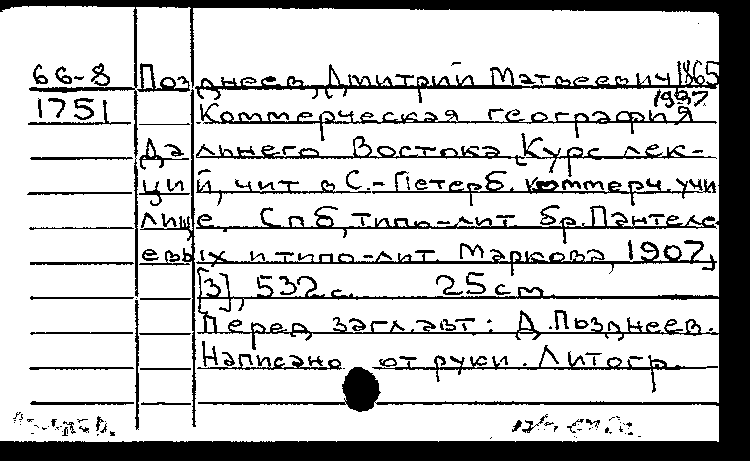 66-8 Позднеев, Дмитрий Матвеевич 1865
1937
1751 Коммерческая география
Дальнего Востока. Курс лек-
ций, чит в С.-Петерб. коммерч. учи
лище. Спб, типо-лит бр. Пантеле
евых и типо-лит. Маркова, 1907,
[3], 532 с. 25 cm
Перед загл. авт: Д. Позднеев.
Написано от руки. Литогр.